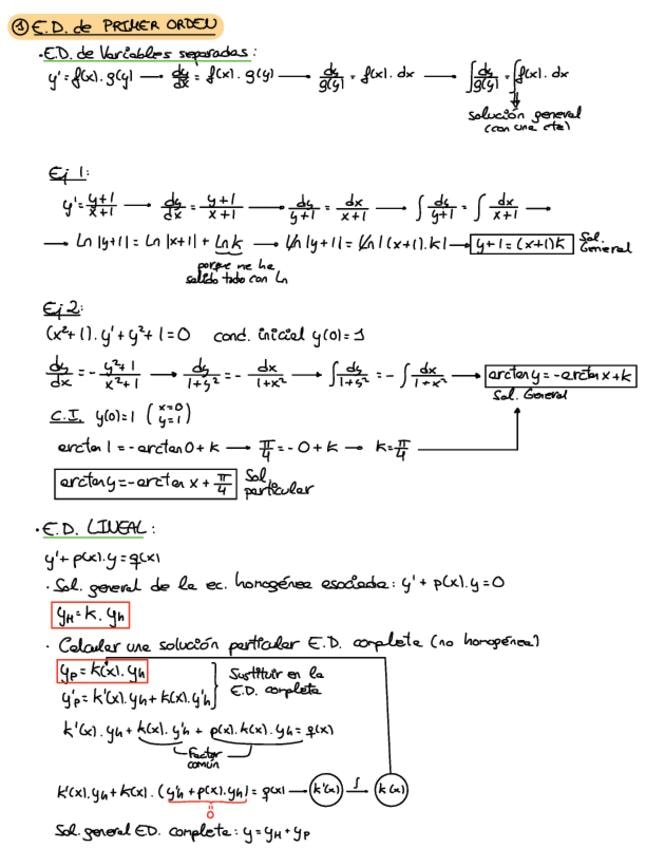 ① E.D. de PRIMER ORDEN
· E.D. de Variables separadas:
y' = f(x) · g(y) → dy/dx = f(x) · g(y) → dy/g(y) = f(x) · dx → ∫ dy/g(y) = ∫ f(x) · dx
↓
solución general
(con una cte)
Ej 1:
y' = y+1/x+1 → dy/dx = y+1/x+1 → dy/y+1 = dx/x+1 → ∫ dy/y+1 = ∫ dx/x+1 →
→ Ln |y+1| = Ln |x+1| + Ln k → Ln |y+1| = Ln |(x+1) · k| → y+1 = (x+1)k Sol. General
porque me ha
salido todo con Ln
Ej 2:
(x²+1) · y' + y² + 1 = 0 cond. inicial y(0) = 1
dy/dx = - y²+1/x²+1 → dy/1+y² = - dx/1+x² → ∫ dy/1+y² = - ∫ dx/1+x² → arctan y = -arctan x + k
Sol. General
C.I. y(0) = 1 (x=0 y=1)
arctan 1 = -arctan 0 + k → π/4 = -0 + k → k = π/4
arctan y = -arctan x + π/4 Sol. particular
· E.D. LINEAL:
y' + p(x) · y = q(x)
· Sol. general de la ec. homogénea asociada: y' + p(x) · y = 0
yH = k · yh
· Calcular una solución particular E.D. completa (no homogénea)
yp = k(x) · yh
y'p = k'(x) · yh + k(x) · y'h
Sustituir en la
E.D. completa
k'(x) · yh + k(x) · y'h + p(x) · k(x) · yh = q(x)
Factor
común
k'(x) · yh + k(x) · (y'h + p(x) · yh) = q(x) → k'(x) ∫→ k(x)
= 0
Sol. general ED. completa: y = yH + yp